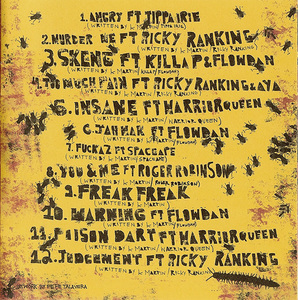 1. ANGRY FT TIPPAIRIE
(WRITTEN BY K MARTIN/
2. MURDER ME FT RICKY RANKING
(WRITTEN BY K MARTIN/ RICKY RANKING)
3. SKENG FT KILLA P & FLOWDAN
(WRITTEN BY K MARTIN/
4. TOO MUCH PAIN FT RICKY RANKING & AYA
(WRITTEN BY K MARTIN/
5. INSANE FT WARRIOR QUEEN
(WRITTEN BY K MARTIN/ WARRIOR QUEEN)
6. JAH WAR FT FLOWDAN
(WRITTEN BY K MARTIN/ FLOWDAN)
7. FUCKAZ FT SPACEAPE
(WRITTEN BY K MARTIN/ SPACEAPE)
8. YOU & ME FT ROGER ROBINSON
(WRITTEN BY K MARTIN/ ROGER ROBINSON)
9. FREAK FREAK
(WRITTEN BY K MARTIN)
10. WARNING FT FLOWDAN
(WRITTEN BY K MARTIN/ FLOWDAN)
11. POISON DART FT WARRIOR QUEEN
(WRITTEN BY K MARTIN/ WARRIOR QUEEN)
12. JUDGEMENT FT RICKY RANKING
(WRITTEN BY K MARTIN/ RICKY RANKING)
ARTWORK BY TALAVERA